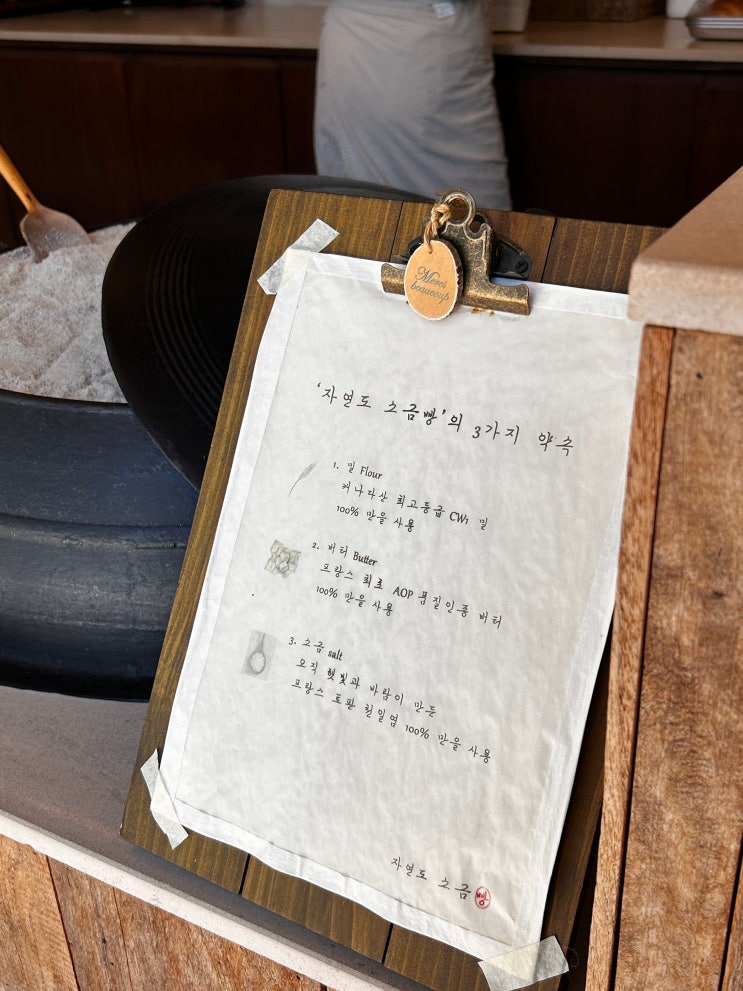 Merci
beaucoup
'자연도 소금빵'의 3가지 약속
1. 밀 Flour
캐나다산 최고등급 CW1 밀
100% 만을 사용
2. 버터 Butter
프랑스 최초 AOP 품질인증 버터
100% 만을 사용
3. 소금 salt
오직 햇빛과 바람이 만든
프랑스 토판 천일염 100% 만을 사용
자연도 소금
빵